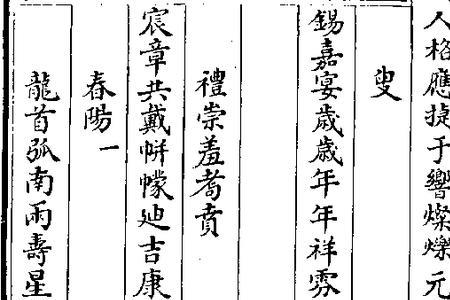 人格應捷于響燦爍元
叟
錫嘉宴歲歲年年祥雰
禮崇羞耈賁
宸章共戴帡幪廸吉康
春陽一
龍首弧南兩壽星